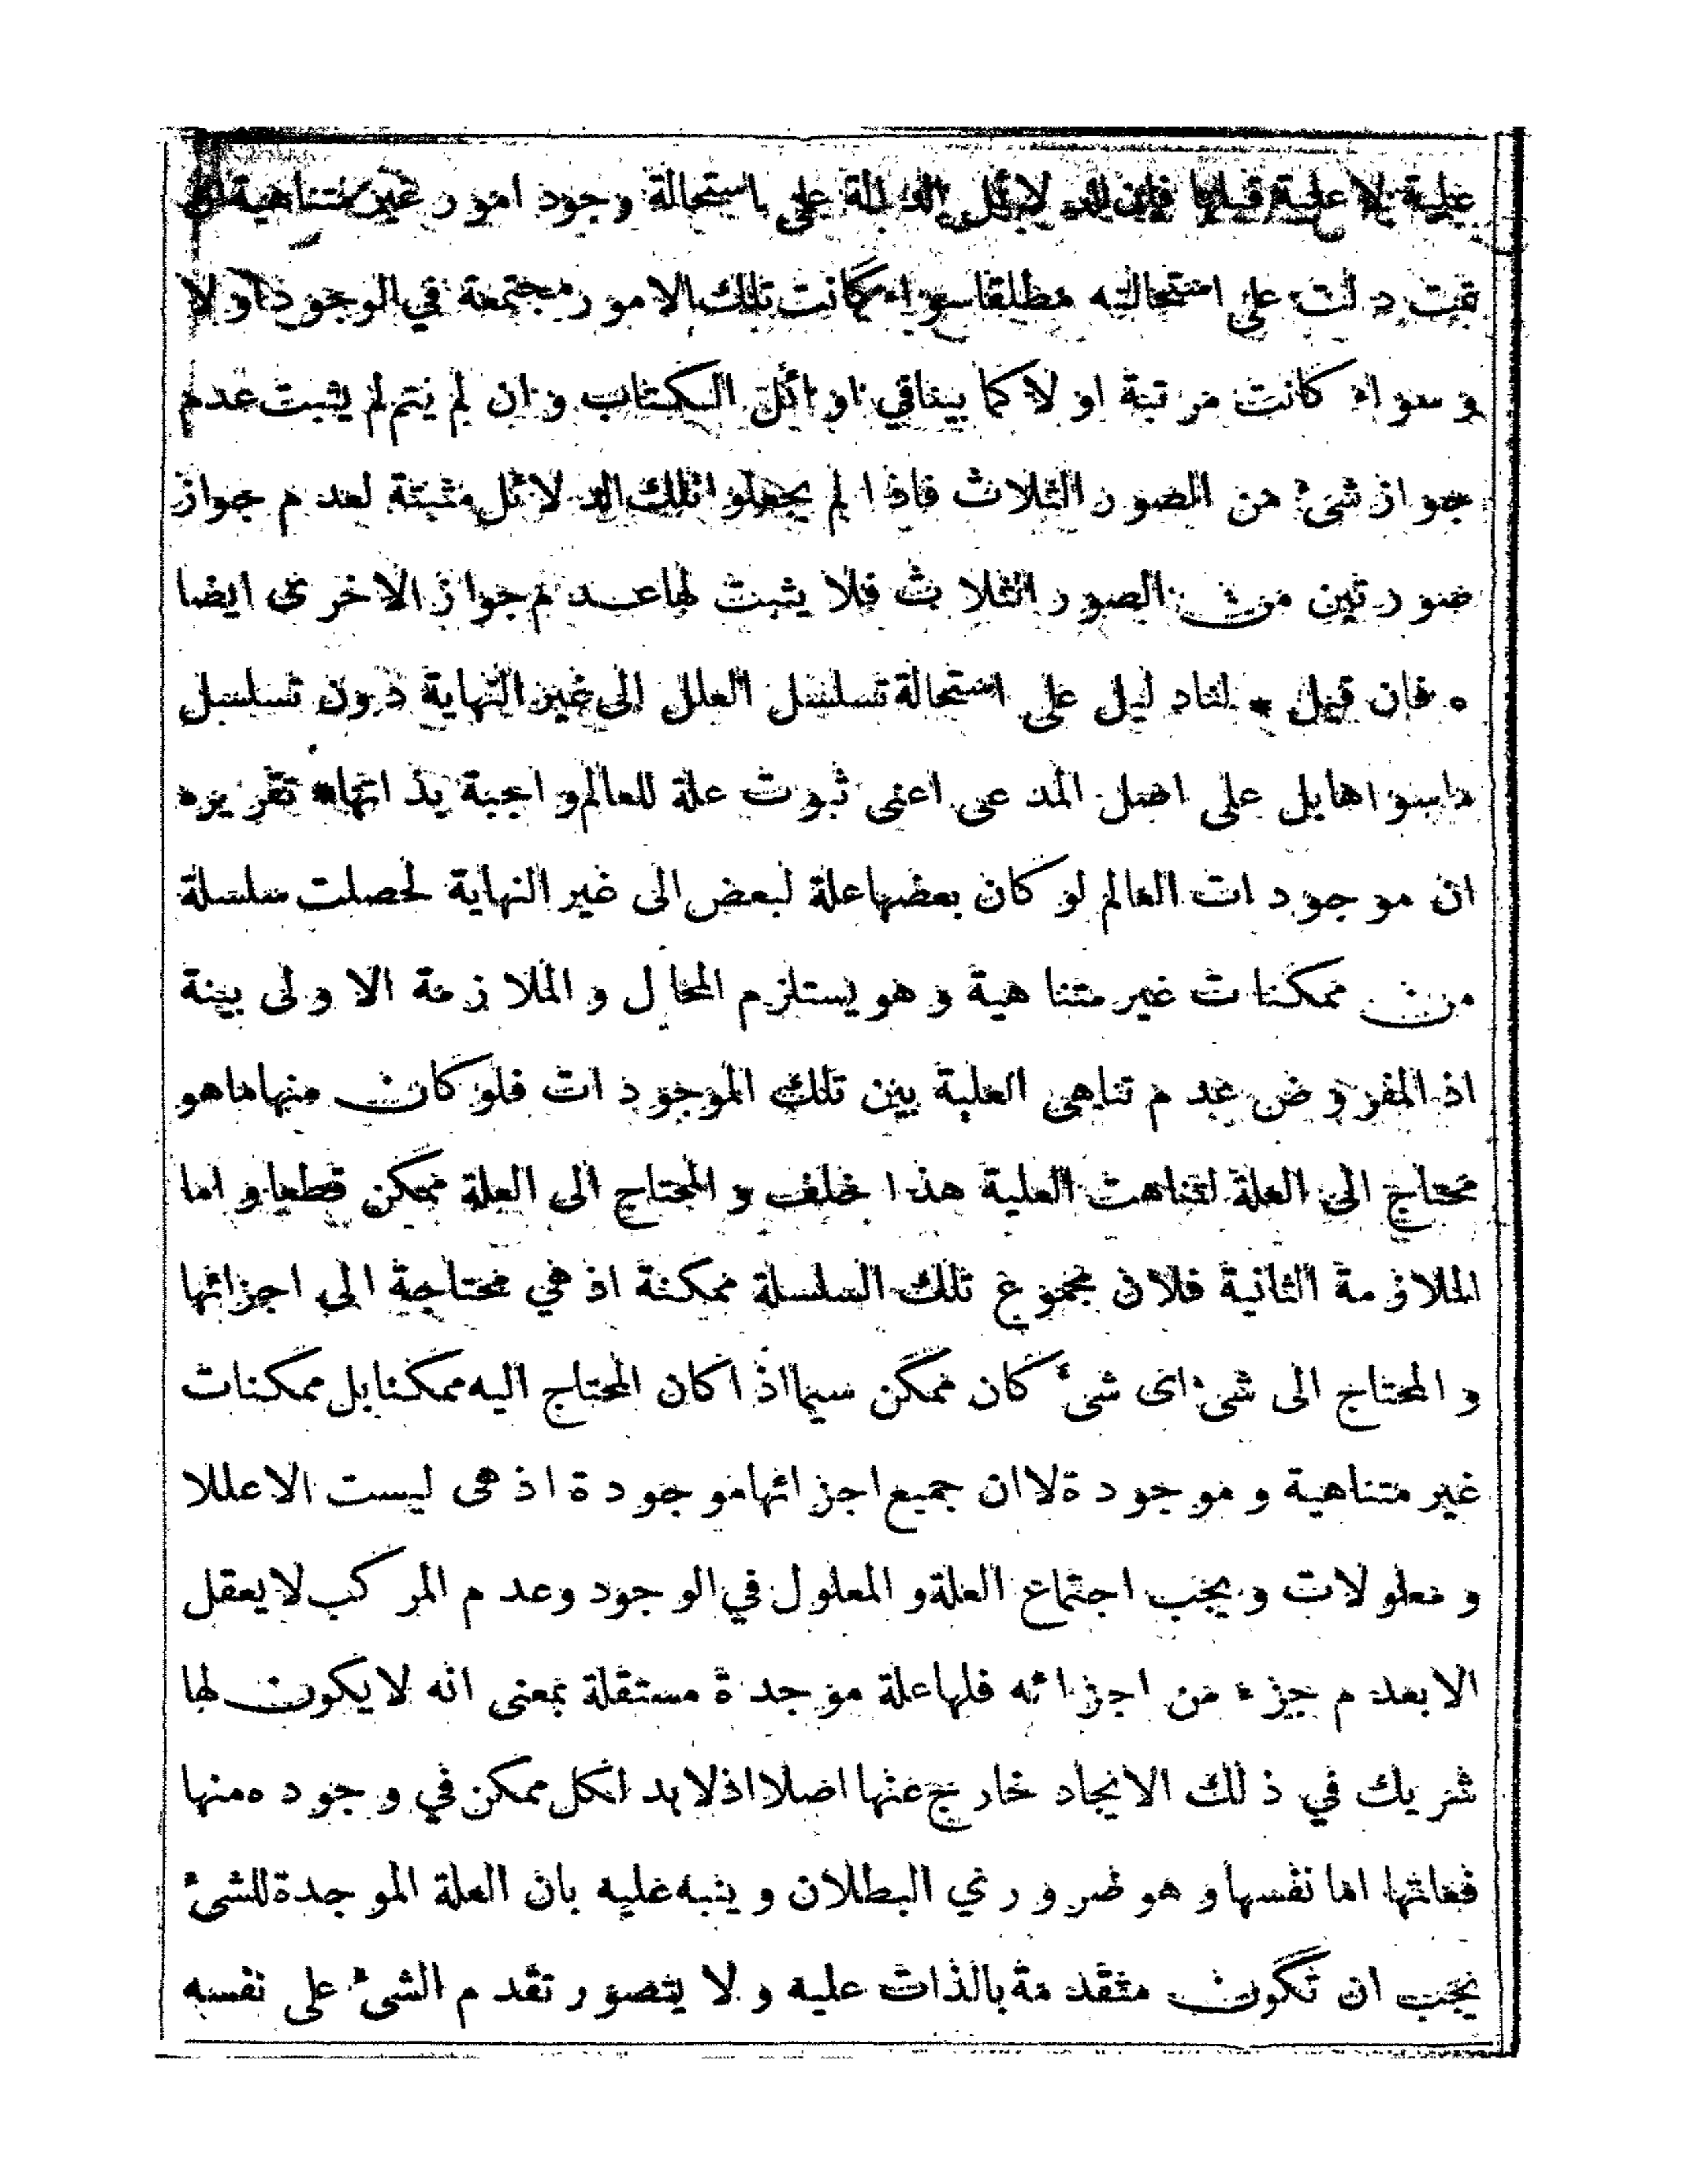 علية لا علية قبلها فان الدلائل الدالة على استحالة وجود امور غير متناهية ان
تمت دلت على استحالته مطلقا سواء كانت تلك الامور مجتمعة في الوجود اولا
و سواء كانت مرتبة او لا كما بينا في اوائل الكتاب و ان لم يتم لم يثبت عدم
جواز شئ من الصور الثلاث فاذا لم يجعلوا تلك الدلائل مثبتة لعدم جواز
صورتين من الصور الثلاث فلا يثبت لها عدم جواز الاخرى ايضا
* فان قيل * لنا دليل على استحالة تسلسل العلل الى غير النهاية دون تسلسل
ما سواها بل على اصل المدعى اعنى ثبوت علة للعالم واجبة بذاتها * تقريره
ان موجودات العالم لو كان بعضها علة لبعض الى غير النهاية لحصلت سلسلة
من ممكنات غير متناهية و هو يستلزم المحال و الملازمة الاولى بينة
اذ المفروض عدم تناهى العلية بين تلك الموجودات فلو كان منها ما هو
محتاج الى العلة لتناهت العلية هذا خلف و المحتاج الى العلة ممكن قطعا و اما
الملازمة الثانية فلان مجموع تلك السلسلة ممكنة اذ هي محتاجة الى اجزائها
و المحتاج الى شئ اى شئ كان ممكن سيما اذا كان المحتاج اليه ممكنا بل ممكنات
غير متناهية و موجودة لاان جميع اجزائها موجودة اذ هى ليست الا عللا
و معلولات و يجب اجتماع العلة و المعلول في الوجود وعدم المركب لا يعقل
الا بعدم جزء من اجزائه فلها علة موجدة مستقلة بمعنى انه لا يكون لها
شريك في ذلك الايجاد خارج عنها اصلا اذ لا بد لكل ممكن في وجوده منها
فعلتها اما نفسها و هو ضروري البطلان و ينبه عليه بان العلة الموجدة للشئ
يجب ان تكون متقدمة بالذات عليه و لا يتصور تقدم الشئ على نفسه